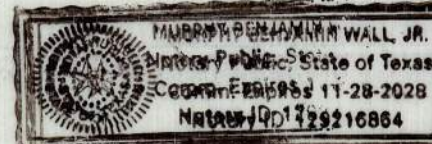 BENJAMIN WALL, JR.
Notary Public, State of Texas
Comm. Expires 11-28-2028
Notary ID